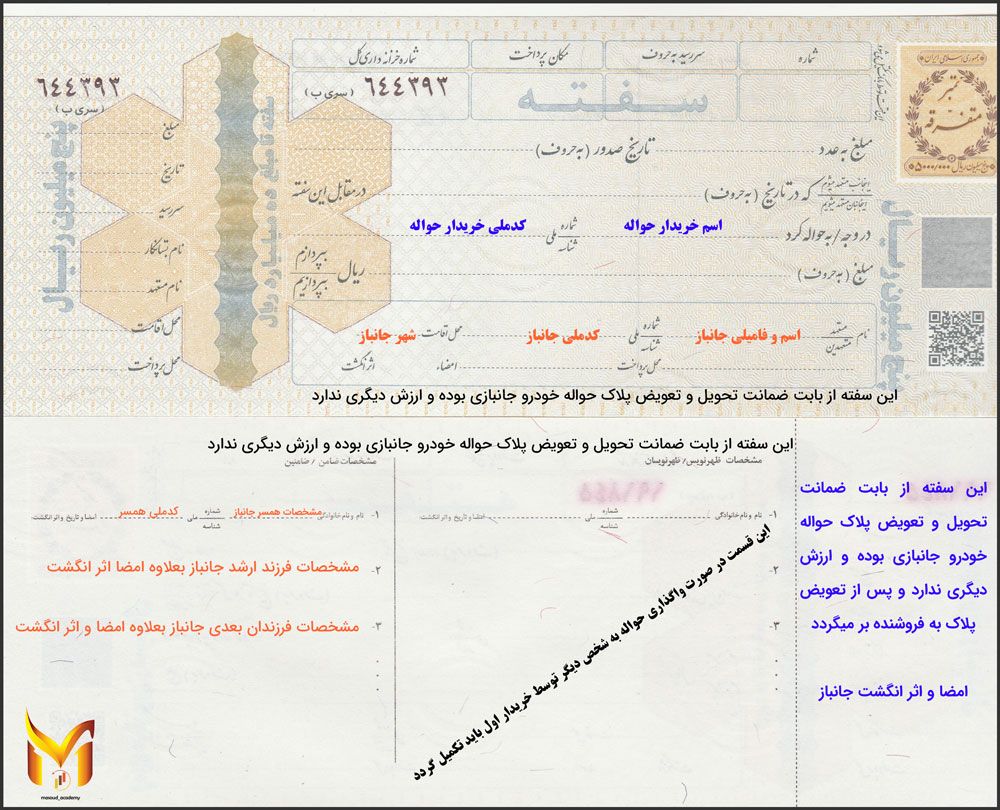 شماره
سررسید به حروف
مکان پرداخت
شماره خزانه داری کل
سفته
۶۴۴۳۹۳
(سری ب)
۶۴۴۳۹۳
(سری ب)
جمهوری اسلامی ایران
تمبر
متفرقه
۵۰۰۰/۰۰۰
پنج میلیون ریال
سفته تا مبلغ ده میلیارد ریال
پنج میلیون ریال
مبلغ به عدد
تاریخ صدور (به حروف)
اینجانب متعهد میشوم
اینجانبان متعهد میشویم
که در تاریخ (به حروف)
در مقابل این سفته
در وجه/به حواله کرد
اسم خریدار حواله
شماره ملی
شناسه
کدملی خریدار حواله
بپردازم
بپردازیم
مبلغ (به حروف)
ریال
نام
متعهد
متعهدین
اسم و فامیلی جانباز
شماره ملی
شناسه
کدملی جانباز
محل اقامت
شهر جانباز
محل پرداخت
امضاء
اثر انگشت
مبلغ
تاریخ
سررسید
نام بستانکار
نام متعهد
محل اقامت
محل پرداخت
این سفته از بابت ضمانت تحویل و تعویض پلاک حواله خودرو جانبازی بوده و ارزش دیگری ندارد
این سفته از بابت ضمانت تحویل و تعویض پلاک حواله خودرو جانبازی بوده و ارزش دیگری ندارد
مشخصات ظهرنویس/ظهرنویسان
مشخصات ضامن / ضامنین
۱- نام و نام خانوادگی
شماره ملی
شناسه
امضا و تاریخ و اثر انگشت
۲-
۳-
این قسمت در صورت واگذاری حواله به شخص دیگر توسط خریدار اول باید تکمیل گردد
۱- نام و نام خانوادگی
مشخصات همسر جانباز
شماره ملی
شناسه
کدملی همسر
امضا و تاریخ و اثر انگشت
۲- مشخصات فرزند ارشد جانباز بعلاوه امضا اثر انگشت
۳- مشخصات فرزندان بعدی جانباز بعلاوه امضا و اثر انگشت
این سفته از بابت ضمانت
تحویل و تعویض پلاک حواله
خودرو جانبازی بوده و ارزش
دیگری ندارد و پس از تعویض
پلاک به فروشنده بر میگردد
امضا و اثر انگشت جانباز
masoud_academy